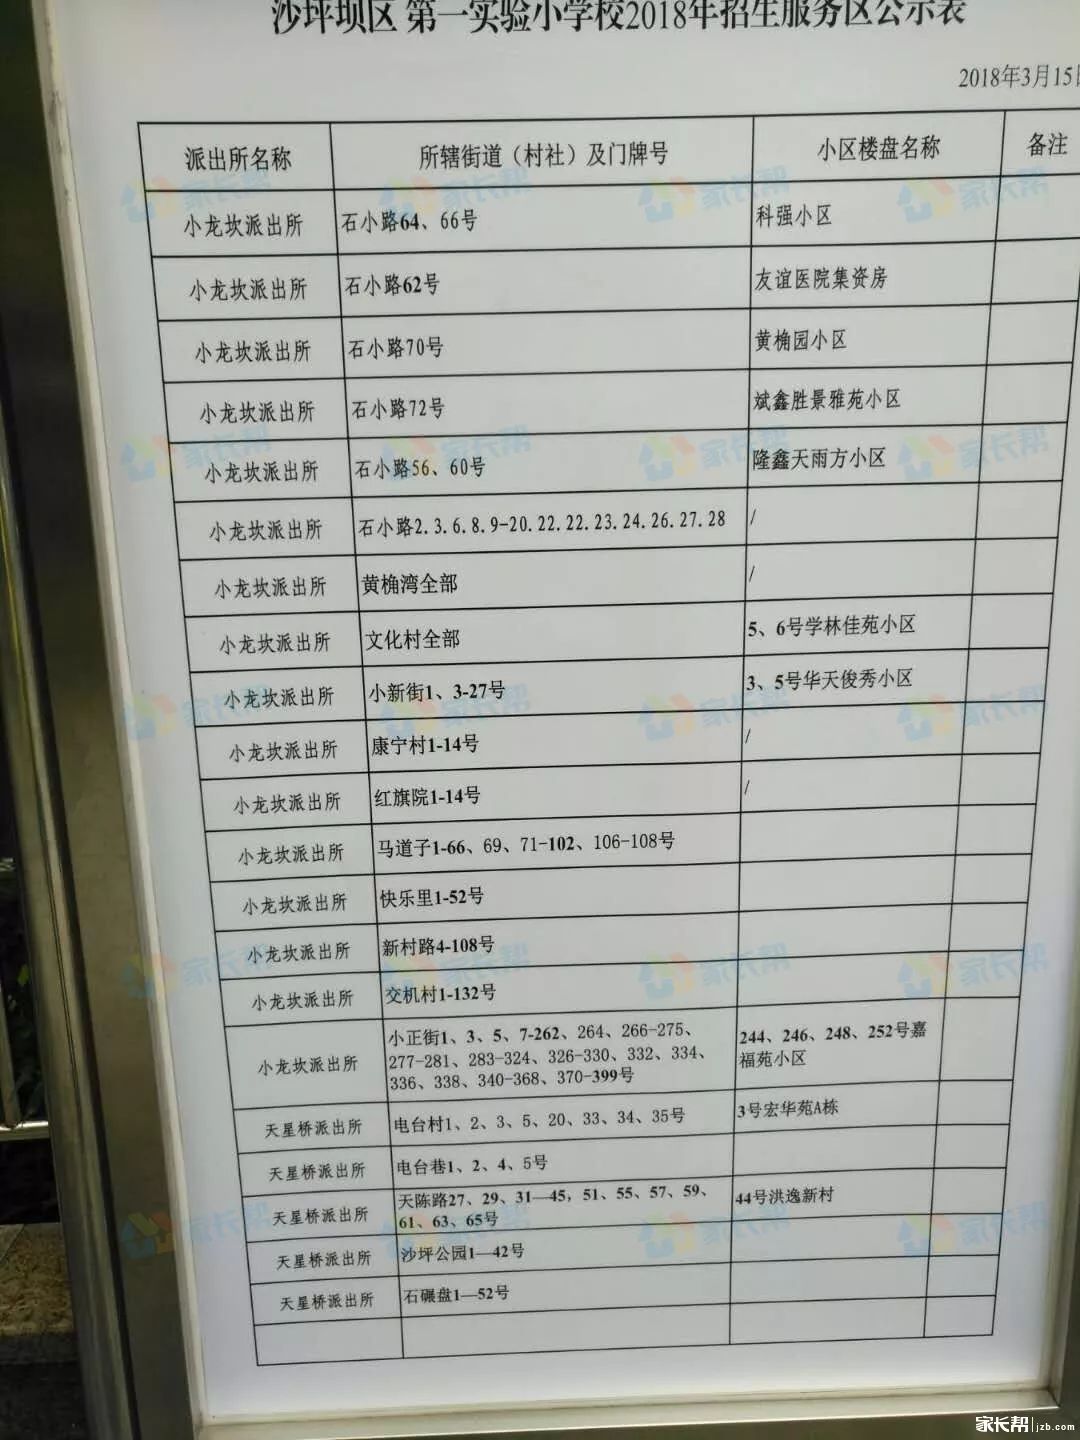 沙坪坝区 第一实验小学校2018年招生服务区公示表
2018年3月15日
派出所名称 所辖街道（村社）及门牌号 小区楼盘名称 备注
小龙坎派出所 石小路64、66号 科强小区
小龙坎派出所 石小路62号 友谊医院集资房
小龙坎派出所 石小路70号 黄桷园小区
小龙坎派出所 石小路72号 斌鑫胜景雅苑小区
小龙坎派出所 石小路56、60号 隆鑫天雨方小区
小龙坎派出所 石小路2.3.6.8.9-20.22.22.23.24.26.27.28 /
小龙坎派出所 黄桷湾全部 /
小龙坎派出所 文化村全部 5、6号学林佳苑小区
小龙坎派出所 小新街1、3-27号 3、5号华天俊秀小区
小龙坎派出所 康宁村1-14号 /
小龙坎派出所 红旗院1-14号 /
小龙坎派出所 马道子1-66、69、71-102、106-108号
小龙坎派出所 快乐里1-52号
小龙坎派出所 新村路4-108号
小龙坎派出所 交机村1-132号
小龙坎派出所 小正街1、3、5、7-262、264、266-275、
277-281、283-324、326-330、332、334、
336、338、340-368、370-399号 244、246、248、252号嘉
福苑小区
天星桥派出所 电台村1、2、3、5、20、33、34、35号 3号宏华苑A栋
天星桥派出所 电台巷1、2、4、5号
天星桥派出所 天陈路27、29、31—45，51、55、57、59、
61、63、65号 44号洪逸新村
天星桥派出所 沙坪公园1—42号
天星桥派出所 石碾盘1—52号
家长帮 jzb.com